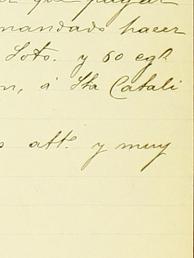 que pagar
mandado hacer
Soto. y 60 cgh
n, á Sta Catali
s atte. y muy